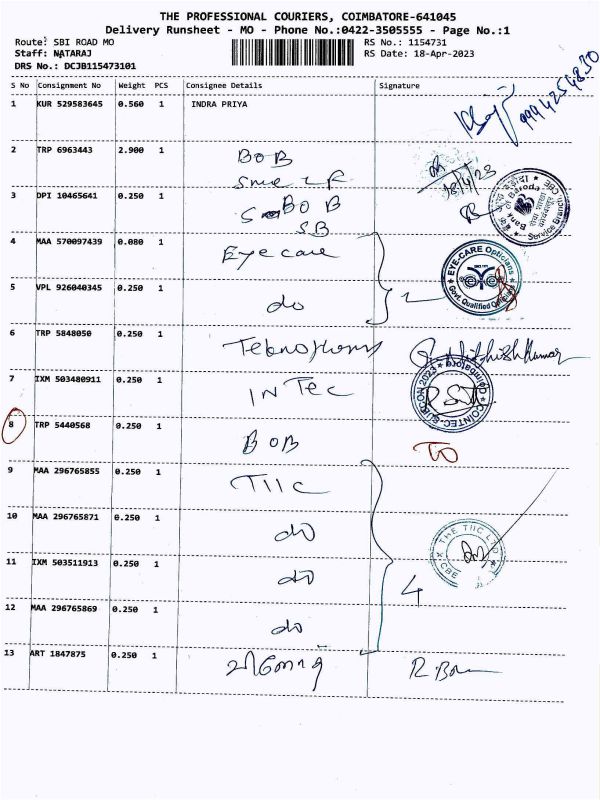 THE PROFESSIONAL COURIERS, COIMBATORE-641045
Delivery Runsheet - MO - Phone No.:0422-3505555 - Page No.:1
Route: SBI ROAD MO RS No.: 1154731
Staff: NATARAJ RS Date: 18-Apr-2023
DRS No.: DCJB115473101
S No Consignment No Weight PCS Consignee Details Signature
1 KUR 529583645 0.560 1 INDRA PRIYA
9994254830
2 TRP 6963443 2.900 1 BOB
18/4/23
3 DPI 10465641 0.250 1 BOB
SB
Bank of Baroda
Service Branch
4 MAA 570097439 0.080 1 Eye care
EYE-CARE Opticians
Govt. Qualified
5 VPL 926040345 0.250 1 do 2
6 TRP 5848050 0.250 1
7 IXM 503480911 0.250 1 INTEC
8 TRP 5440568 0.250 1 BOB TO
9 MAA 296765855 0.250 1 TIIC
10 MAA 296765871 0.250 1 do
THE TIIC LTD
CBE
11 IXM 503511913 0.250 1 do 4
12 MAA 296765869 0.250 1 do
13 ART 1847875 0.250 1